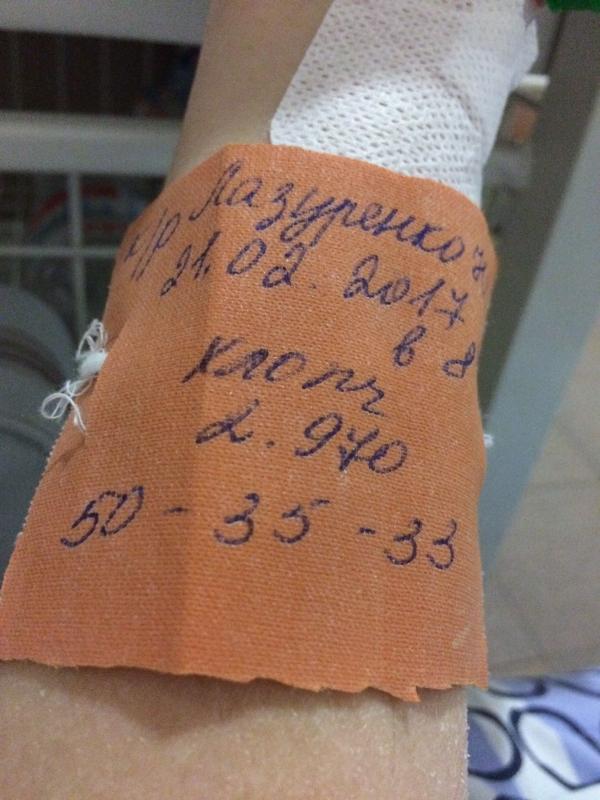 н/р Лазуренко
21.02.2017
в 8
хлопч
2.970
50 - 35 - 33